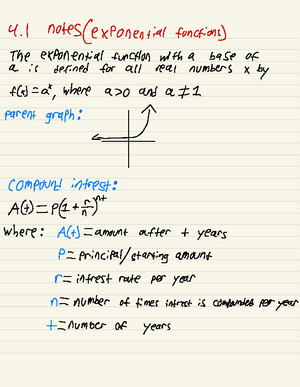 4.1 notes(exponential functions)
The exponential function with a base of
a is defined for all real numbers x by
f(x)=aˣ, where a>0 and a≠1
parent graph:
compound intrest:
A(t)=P(1+r/n)ⁿᵗ
where: A(t)=amount after t years
P=principal/starting amount
r=intrest rate per year
n=number of times intrest is compounded per year
t=number of years